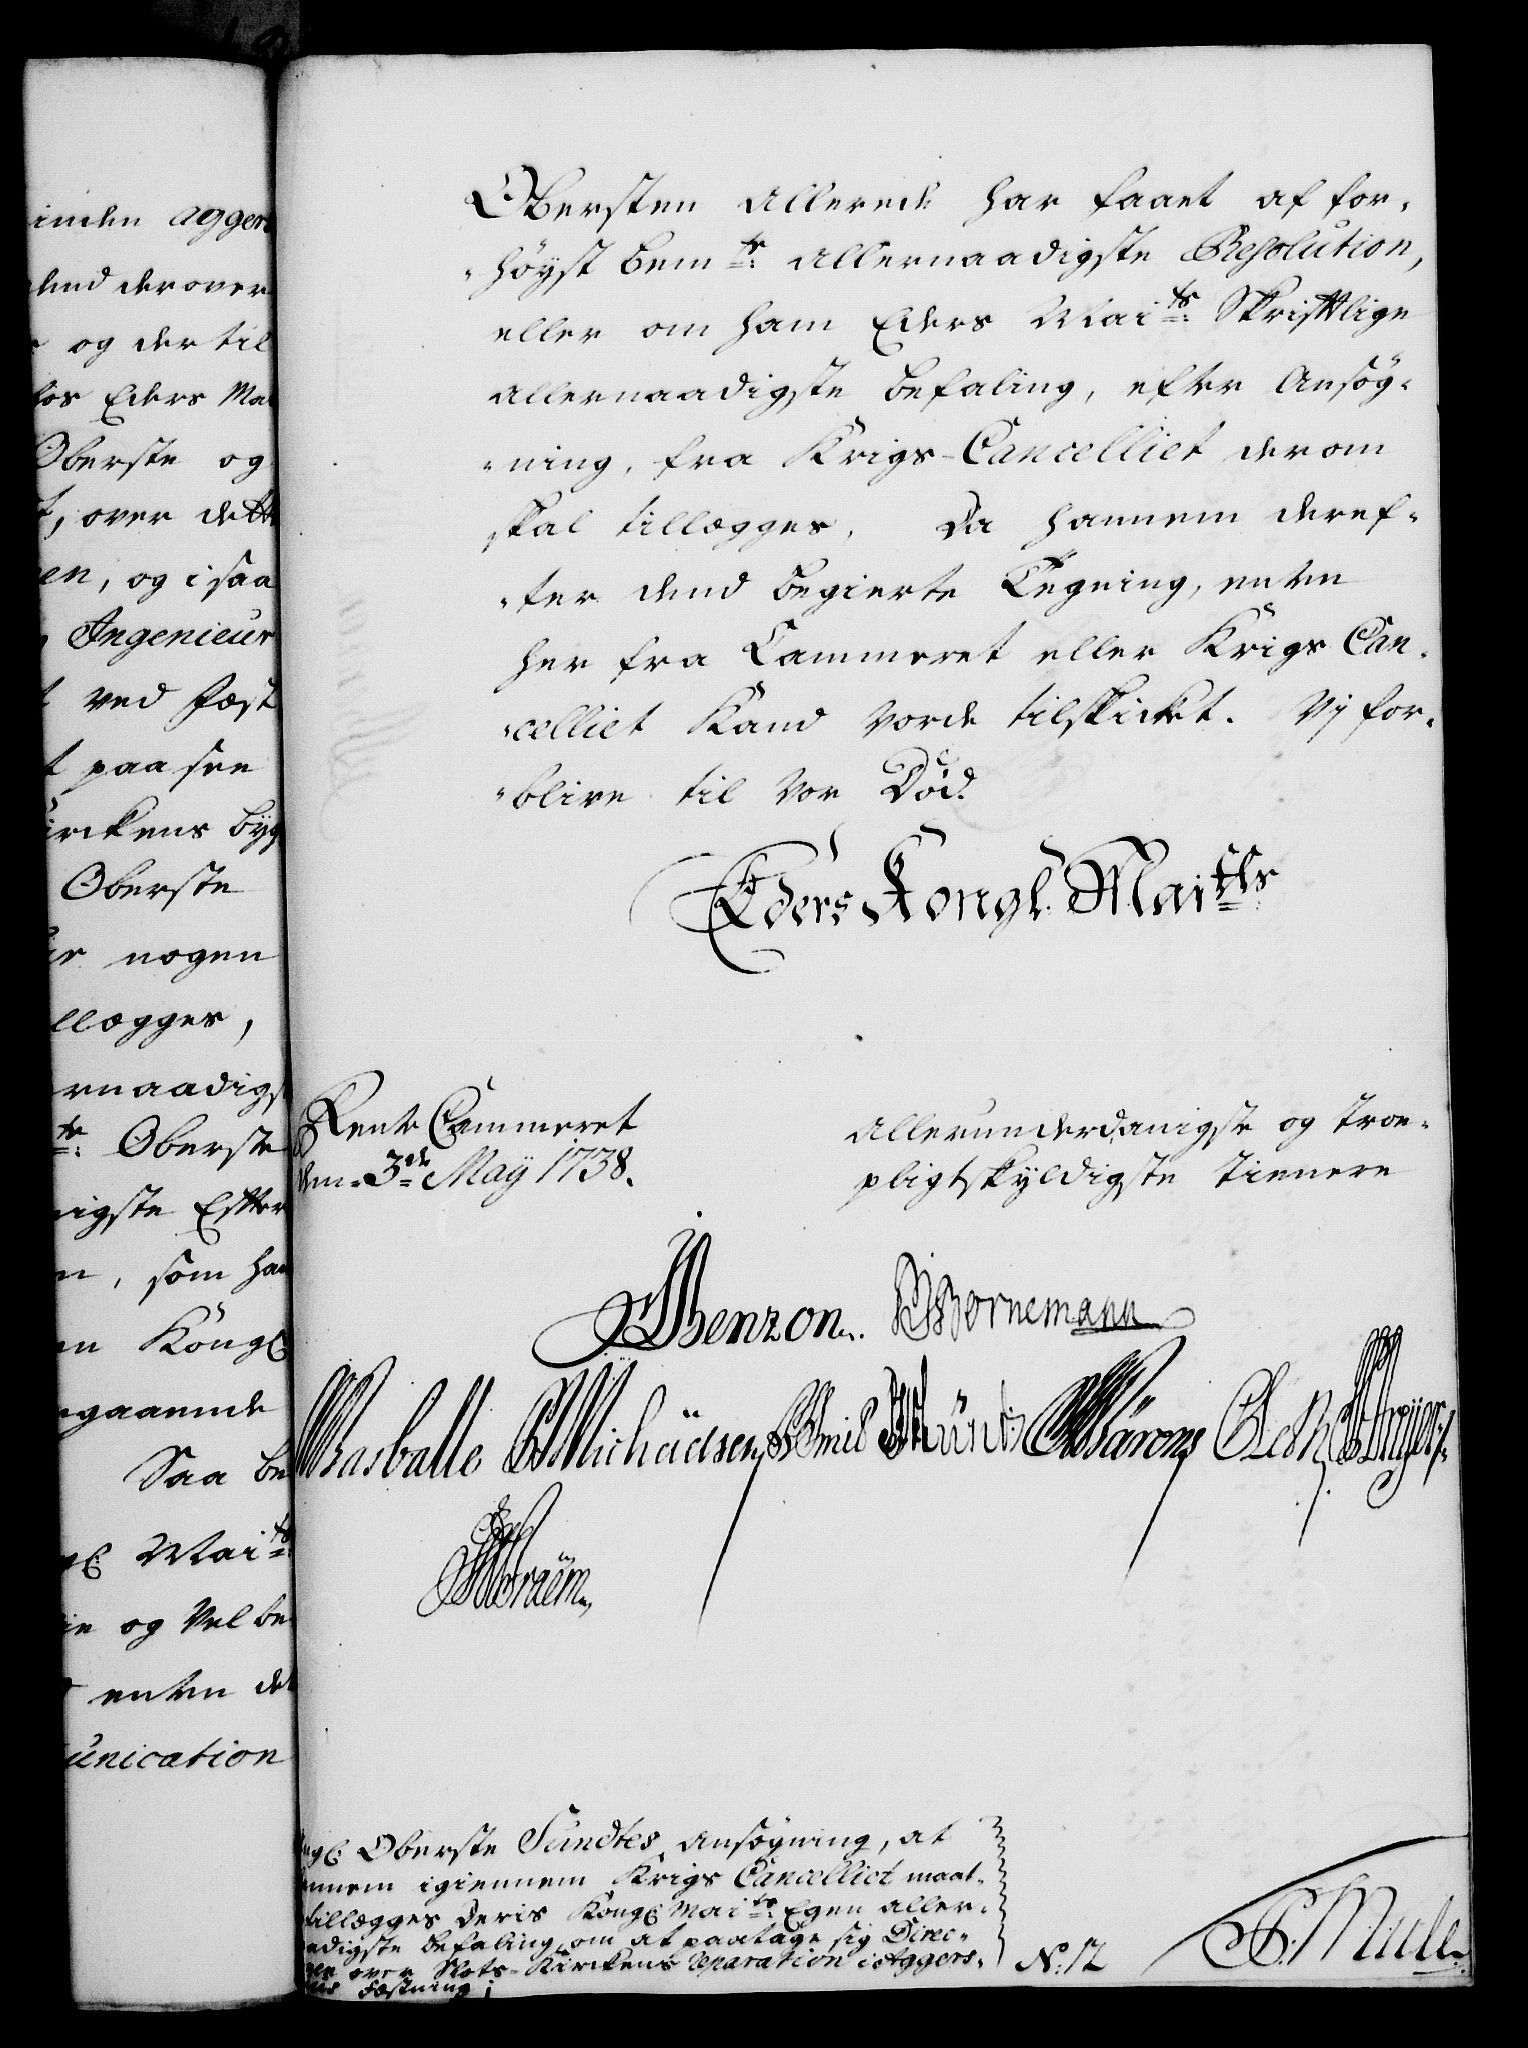 inden agger
dend derover
og der til
hos Eders Ma
Oberste og
over dette
en, og i saa
Ingenieur
ved fæst
paa see
irckens byg
Oberste
nogen
llægges,
rnaadigst
te: Oberste
nigste Efter
som han
Kongl
gaaende
Saa be
Mai ts:
og Vel be
enten det
unication
Obersten allerede har faaet af for-
-höyst bem te: allernaadigste Resolution,
eller om ham Eders Mai ts: Skriftlige
allernaadigste befaling, efter Ansög-
-ning, fra Krigs-Cancelliet derom
skal tillægges. Da hannem deref-
-ter dend begierte Tegning, enten
her fra Cammeret eller Krigs Can-
-celliet kand vorde tilskicket. Vj for-
-blive til vor Död.
Eders Kongl. Mai tts
Rente Cammeret
den 3de May 1738.
allerunderdanigste og troe-
pligtskyldigste tienere
Benzon. Bornemann
Basballe Michäelsen
Braëm
ngl Oberste Sundtes ansögning, at
annem igiennem Krigs Cancelliet maat-
tillægges deris Kongl Mai ts: Egen aller-
adigste befaling, om at paatage sig Direc-
over Slots-Kirckens reparation i Aggers-
fæstning;
N: 12